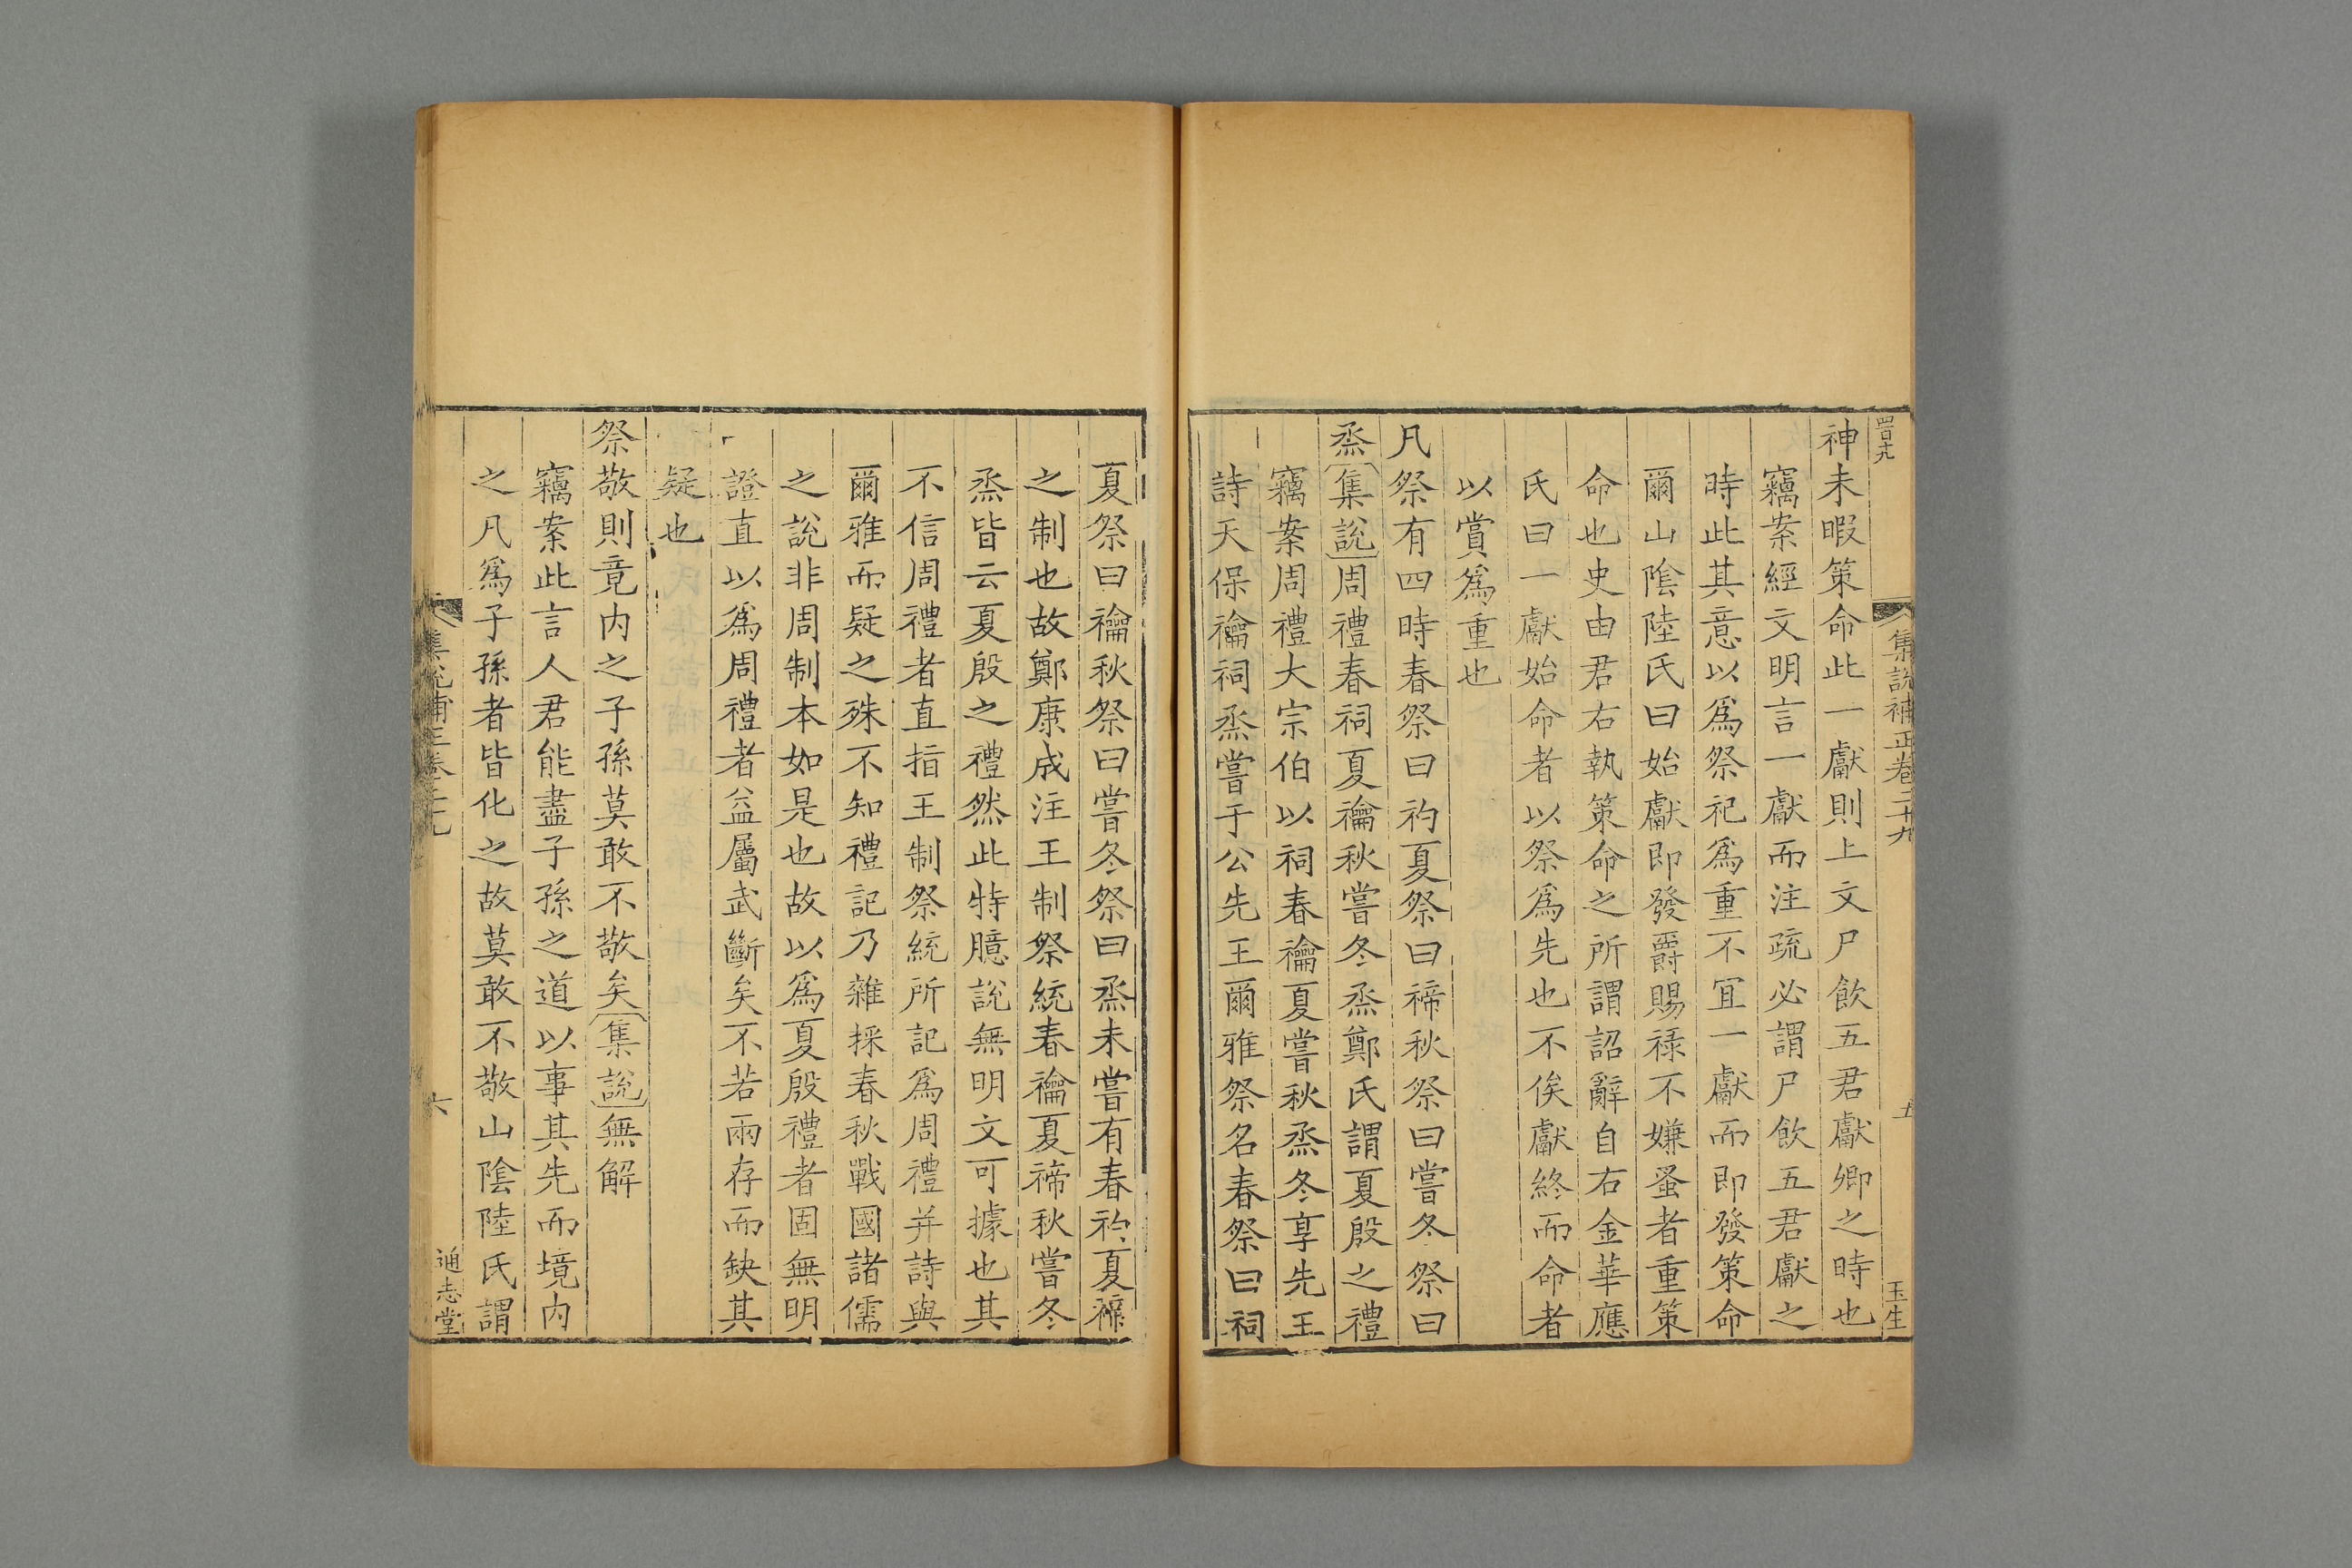 四百九
集說補正卷三十九
五
玉生
神未暇策命此一獻則上文尸飲五君獻卿之時也
竊案經文明言一獻而注疏必謂尸飲五君獻之
時此其意以爲祭祀爲重不冝一獻而即發策命
爾山陰陸氏曰始獻即發爵賜祿不嫌蚤者重策
命也史由君右執策命之所謂詔辭自右金華應
氏曰一獻始命者以祭爲先也不俟獻終而命者
以賞爲重也
凡祭有四時春祭曰礿夏祭曰禘秋祭曰嘗冬祭曰
烝集說周禮春祠夏禴秋嘗冬烝鄭氏謂夏殷之禮
竊案周禮大宗伯以祠春禴夏嘗秋烝冬享先王
詩天保禴祠烝嘗于公先王爾雅祭名春祭曰祠
夏祭曰禴秋祭曰嘗冬祭曰烝未嘗有春礿夏禘
之制也故鄭康成注王制祭統春禴夏禘秋嘗冬
烝皆云夏殷之禮然此特臆說無明文可據也其
不信周禮者直指王制祭統所記爲周禮并詩與
爾雅而疑之殊不知禮記乃雜採春秋戰國諸儒
之說非周制本如是也故以爲夏殷禮者固無明
證直以爲周禮者益屬武斷矣不若兩存而缺其
疑也
祭敬則竟内之子孫莫敢不敬矣集說無解
竊案此言人君能盡子孫之道以事其先而境内
之凡爲子孫者皆化之故莫敢不敬山陰陸氏謂
集說補正卷三十九
六
通志堂